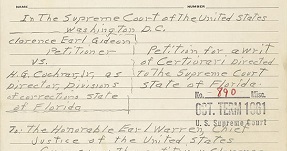 NAME NUMBER
In The Supreme Court of The United States
Washington D.C.
Clarence Earl Gideon
Petitioner Petition for a writ
vs. of Certiorari Directed
H.G. Cochran, Jr., as to The Supreme Court
Director, Divisions State of Florida
of corrections State No. 790 Misc.
of Florida OCT. TERM 1961
U. S. Supreme Court
To: The Honorable Earl Warren, Chief
Justice of the United States